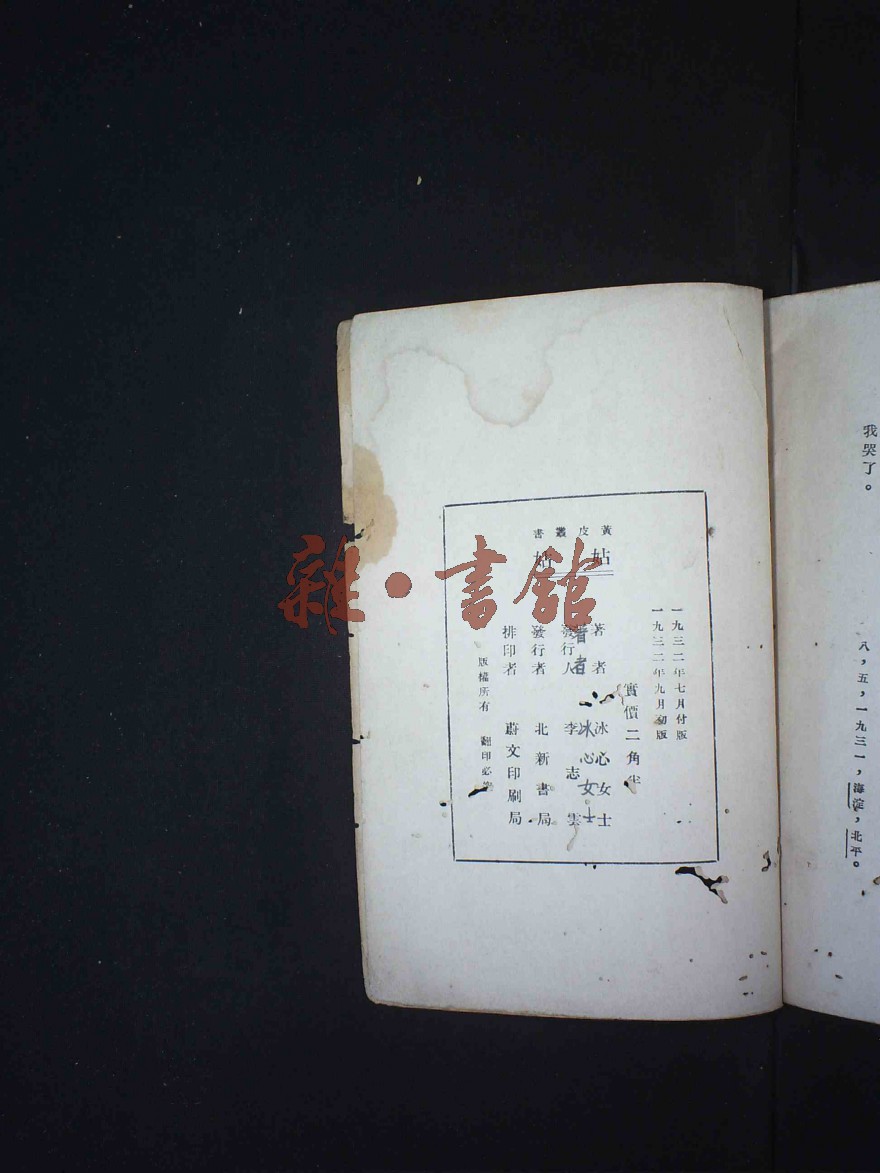 我哭了。
八，五，一九三一，海淀，北平。
黃皮叢書
姑姑
一九三二年七月付版
一九三二年九月初版
實價二角
著者 冰心女士
著者 冰心女士
發行人 李志雲
發行者 北新書局
排印者 蔚文印刷局
版權所有 翻印必究
雜·書館